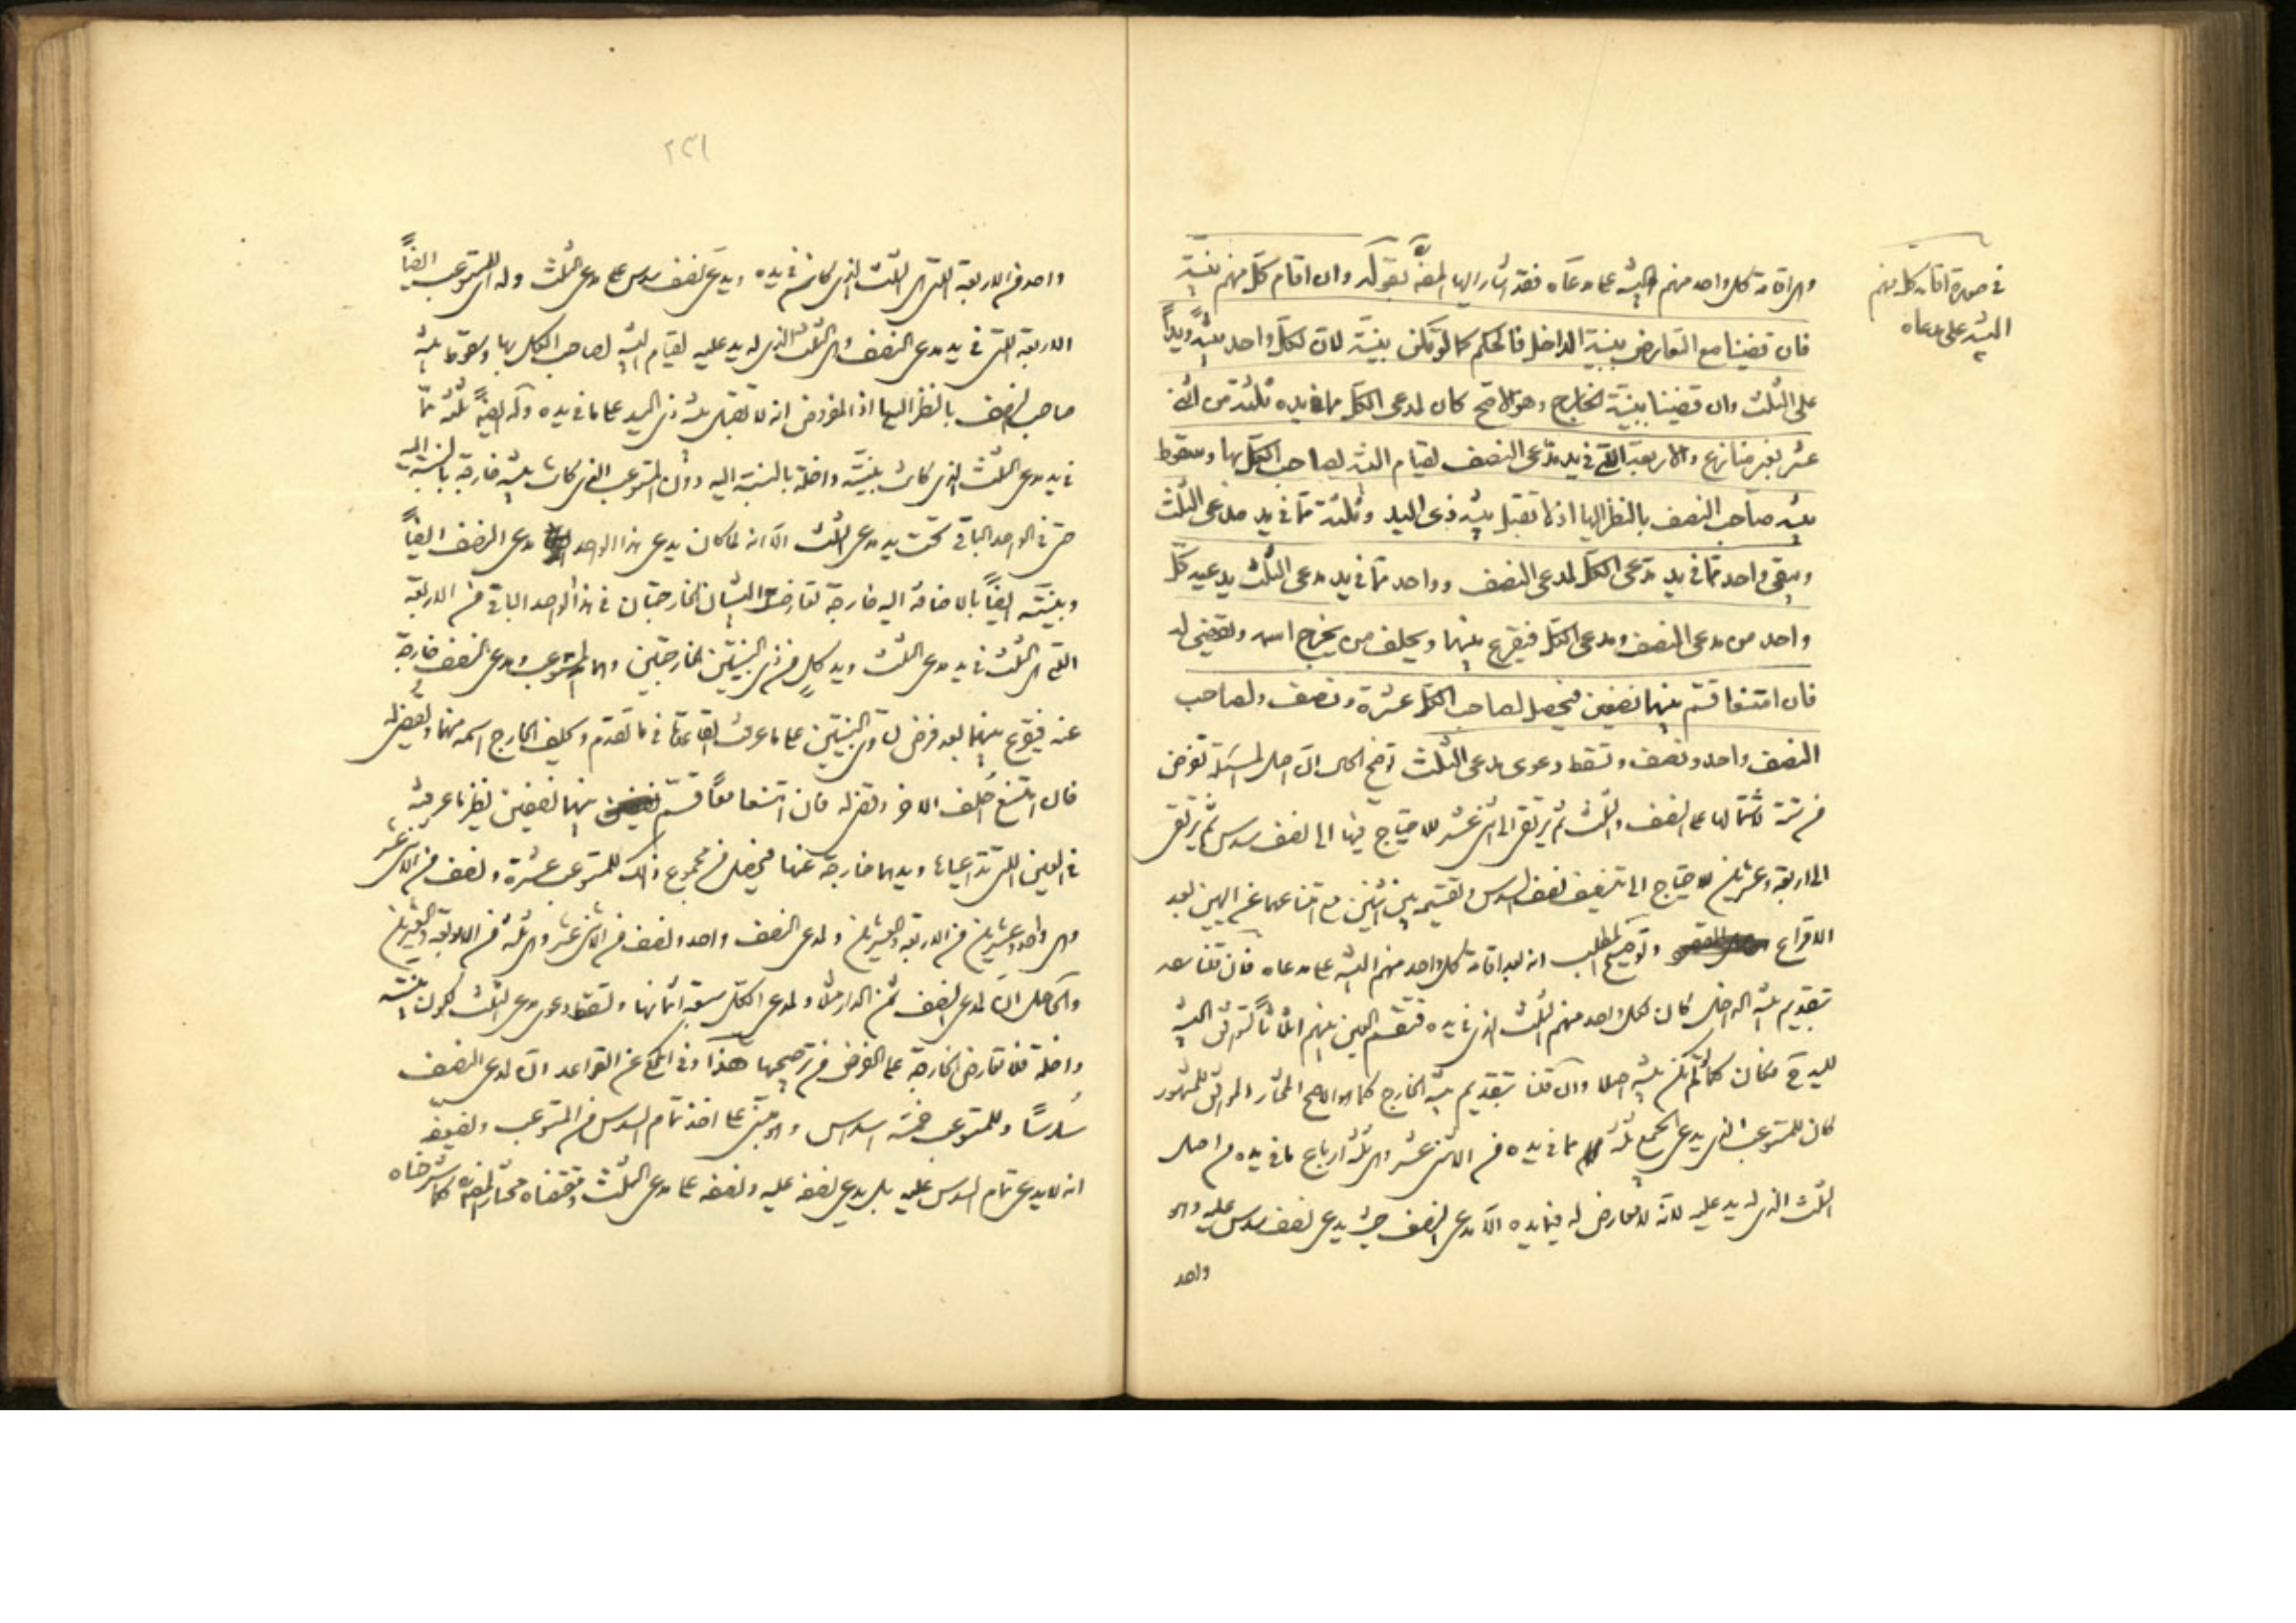 في صورة اقامة كل منهم
البينة على مدعاه
وهى اقامة كل واحد منهم البينة على مدعاه فقد اشار اليها المصنف بقوله وان اقام كل منهم بينة
فان قضينا مع التعارض ببينة الداخل فالحكم كما لو لم تكن بينة لان لكل واحد بينة ويداً
على الثلث وان قضينا ببينة الخارج وهو الاصح كان لمدعى الكل مما في يده ثلثة من اثنى
عشر بغير منازع والاربعة التي في يد مدعى النصف لقيام البينة لصاحب الكل بها وسقوط
بينة صاحب النصف بالنظر اليها اذ لا تقبل بينة ذى اليد وثلثة مما في يد مدعى الثلث
ويبقى واحد مما في يد مدعى الكل لمدعى النصف وواحد مما في يد مدعى الثلث يدعيه كل
واحد من مدعى النصف ومدعى الكل فيقرع بينهما ويحلف من يخرج اسمه ويقضى له
فان امتنعا قسم بينهما نصفين فيحصل لصاحب الكل عشرة ونصف ولصاحب
النصف واحد ونصف وتسقط دعوى مدعى الثلث توضيح الحال ان اصل المسئلة تفرض
من ستة لاشتمالها على النصف والثلث ثم يرتقى الى اثنى عشر للاحتياج فيها الى نصف سدس ثم يرتقى
الى اربعة وعشرين للاحتياج الى تنصيف نصف السدس وتقسيمه بين اثنين مع امتناعهما عن اليمين بعد
الاقراع وتوضيح المطلب انه بعد اقامة كل واحد منهم البينة على مدعاه فان قلنا
بتقديم بينة الداخل كان لكل واحد منهم الثلث الذى في يده فتقسم العين بينهم اثلاثاً
لليد فكان كما لم تكن بينة اصلا وان قلنا بتقديم بينة الخارج كما هو الاصح المختار الموافق للمشهور
كان للمستوعب الذى يدعى الجميع ثلثة مما في يده من الاثنى عشر وهى ثلثة ارباع ما في يده من اصل
الثلث الذى له يد عليه لانه لا معارض له فيما يده الا مدعى النصف حيث يدعى نصف سدس عليه وهو
واحد
٢٣١
واحد من الاربعة التى هى الثلث الذى كان في يده ويدعى نصف سدس على مدعى الثلث وله اى للمستوعب ايضاً
الاربعة التى في يد مدعى النصف وهى الثلث الذى له يد عليه لقيام البينة لصاحب الكل بها وسقوط بينة
صاحب النصف بالنظر اليها اذ المفروض انه لا تقبل بينة ذى اليد على ما في يده وله ايضاً ثلثة مما
في يد مدعى الثلث الذى كانت بينته داخلة بالنسبة اليه دون المستوعب الذى كانت بينته خارجة بالنسبة اليه
حتى في الواحد الباقى تحت يد مدعى الثلث الا انه لما كان يدعى هذا الواحد مدعى النصف ايضاً
وبينته ايضاً بالاضافة اليه خارجة تعارضت البينتان الخارجتان في هذا الواحد الباقى من الاربعة
التى هى الثلث في يد مدعى الثلث ويد كل من ذى البينتين الخارجتين وهما المستوعب ومدعى النصف خارجة
عنه فيقرع بينهما بعد فرض تساوى البينتين على ما عرفت القاعدة في ما تقدم ويحلف الخارج اسمه منهما ويقضى له
فان امتنع احلف الاخر وقضى له فان امتنعا معاً قسم بينهما نصفين نظير ما عرفته
في العين التى تداعياها ويدهما خارجة عنها فيحصل من مجموع ذلك للمستوعب عشرة ونصف من الاثنى عشر
وهى واحد وعشرين من الاربعة والعشرين ولمدعى النصف واحد ونصف من الاثنى عشر وهى ثلثة من الاربعة والعشرين
والحاصل ان لمدعى النصف ثمن الدار مثلاً ولمدعى الكل سبعة اثمانها وتسقط دعوى مدعى الثلث لكون بينته
داخلة فلا تعارض الخارجة على الفرض من ترجيحها هذا وفى المحكى عن القواعد ان لمدعى النصف
سدساً وللمستوعب خمسة اسداس وهو مبنى على اخذ تمام السدس من المستوعب وتضعيفه
انه لا يدعى تمام السدس عليه بل يدعى نصفه عليه ونصفه على مدعى الثلث